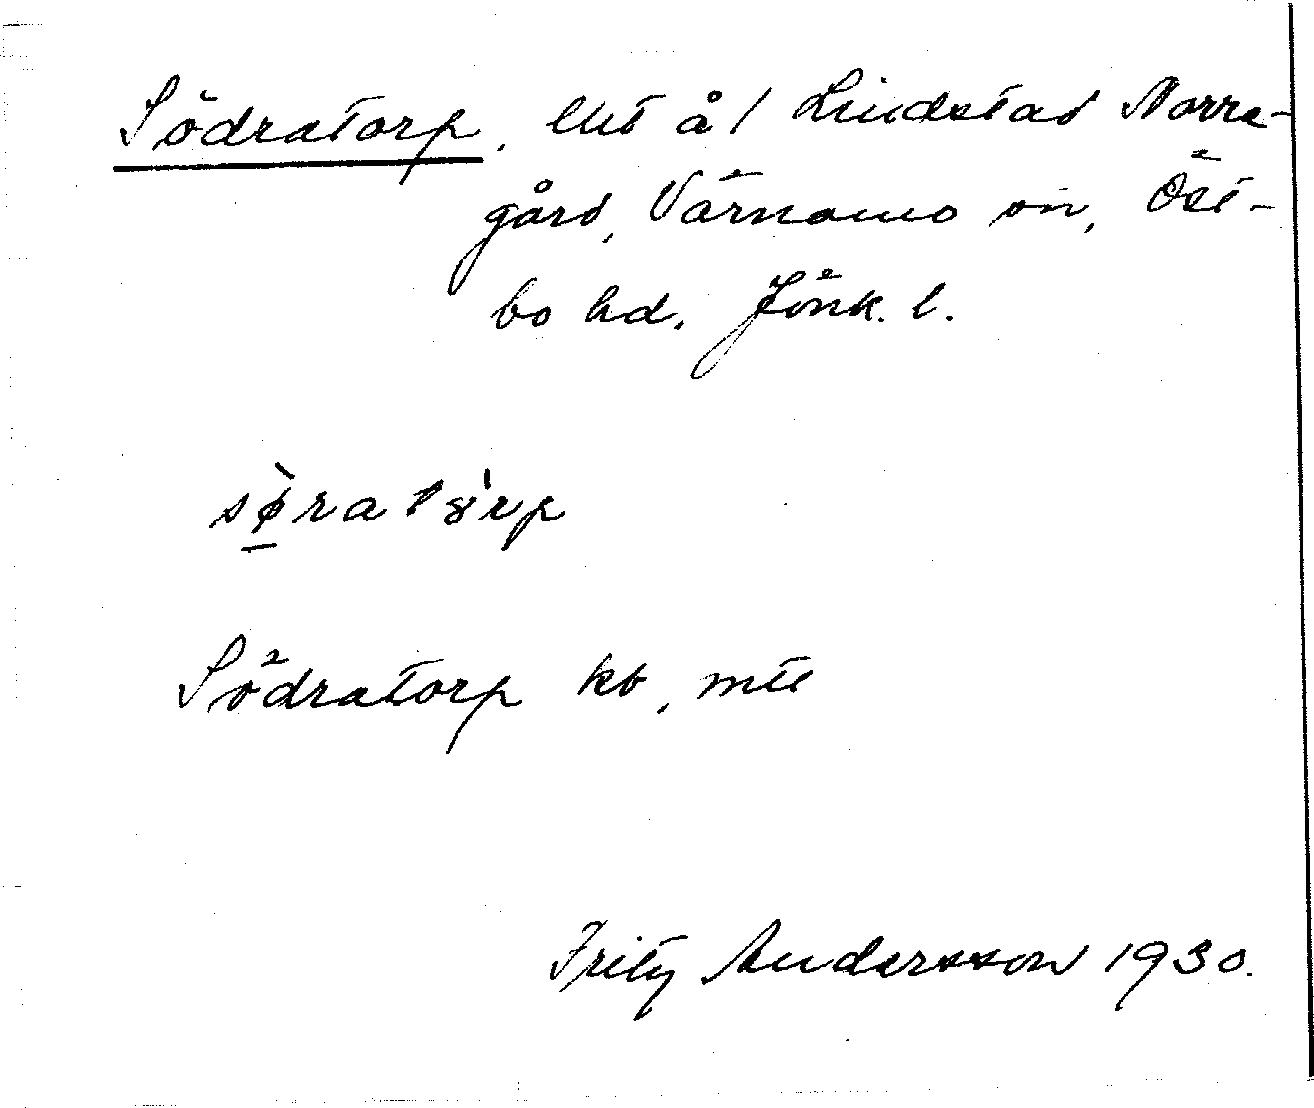 Södratorp, lht å 1 Lindstad Norra-
gård, Värnamo sn, Öst-
bo hd. Jönk. l.
Södratorp kb, mtl
Fritz Andersson 1930.